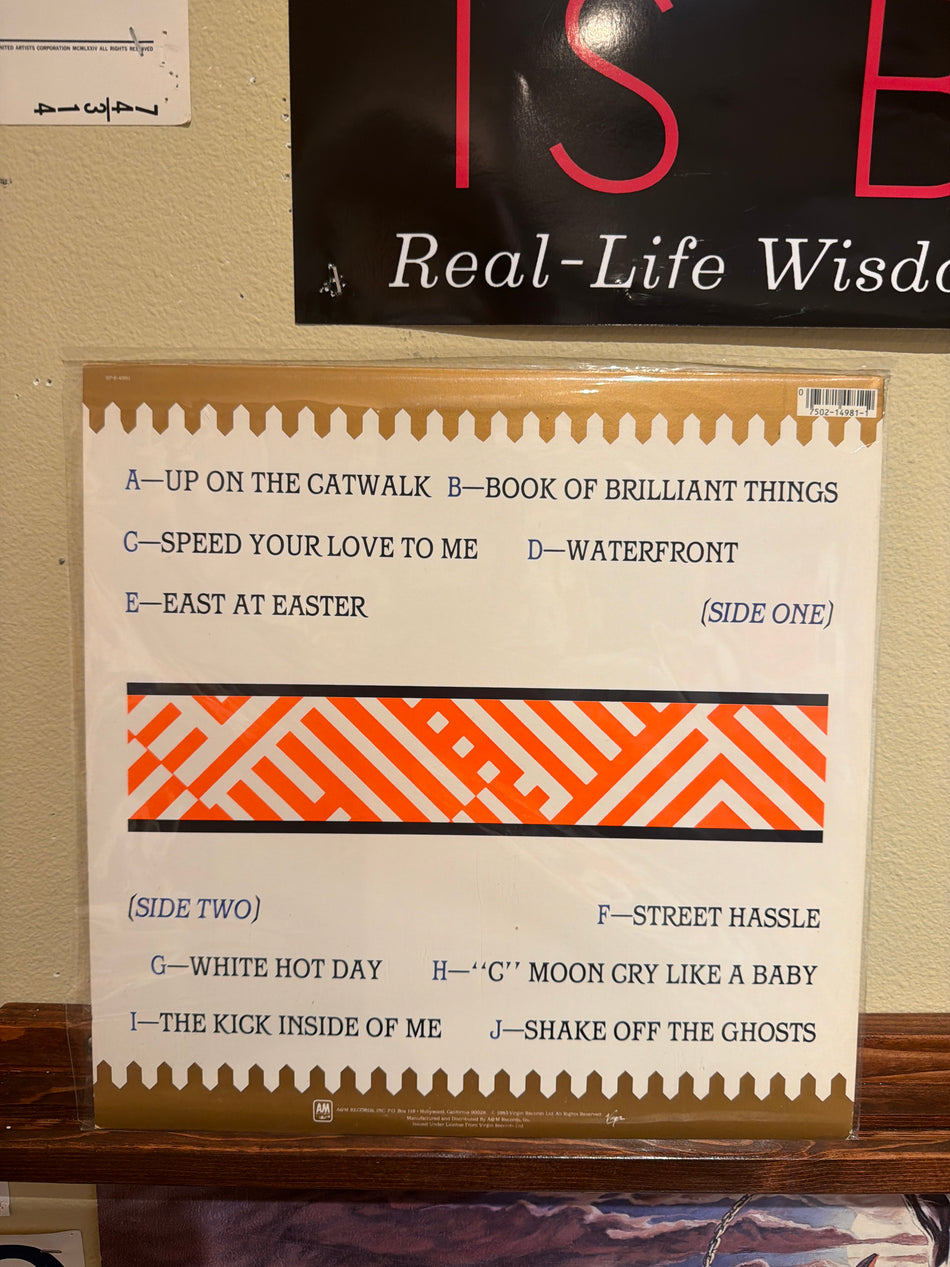 NITED ARTISTS CORPORATION MCMLXXIV ALL RIGHTS RESERVED
74
314
IS B
Real-Life Wisdo
SP-6-4981
0
7502-14981-1
A—UP ON THE CATWALK B—BOOK OF BRILLIANT THINGS
C—SPEED YOUR LOVE TO ME D—WATERFRONT
E—EAST AT EASTER (SIDE ONE)
(SIDE TWO) F—STREET HASSLE
G—WHITE HOT DAY H—“C” MOON CRY LIKE A BABY
I—THE KICK INSIDE OF ME J—SHAKE OFF THE GHOSTS
A&M A&M RECORDS, INC. P.O. Box 118 • Hollywood, California 90028 1983 Virgin Records Ltd. All Rights Reserved Virgin
Manufactured and Distributed By A&M Records, Inc.
Issued Under License From Virgin Records Ltd